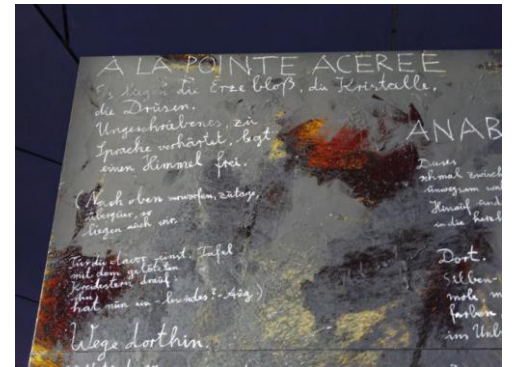 À LA POINTE ACÉRÉE
Es liegen die Erze bloß, die Kristalle,
die Drüsen.
Ungeschriebenes, zu
Sprache verhärtet, legt
einen Himmel frei.
(Nach oben verworfen, zutage,
überquer, so
liegen auch wir.
Tür du davor einst, Tafel
mit dem getöteten
Kreidestern drauf
ihn
hat nun ein - lesendes? - Aug.)
Wege dorthin.
ANAB
Dieses
schmal zwisch
unwegsam wah
Hinauf und
in die herzhe
Dort.
Silben-
mole, m
farben
ins Unb